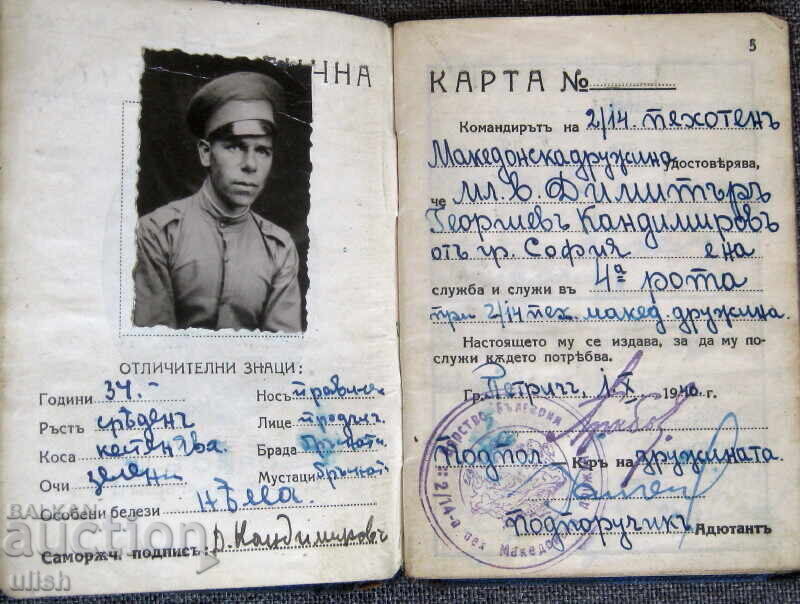 ЧНА
ОТЛИЧИТЕЛНИ ЗНАЦИ:
Години 34.-
Ръстъ срѣденъ
Коса кестенява.
Очи зелени
Носъ правиленъ
Лице продълг.
Брада
Мустаци
Особени белези нѣма.
Саморѫч. подписъ: Д. Кандимировъ
BALKAN
auction
ulish
5
КАРТА №
Командирътъ на 2/14. пехотенъ
Македонска дружина удостовѣрява,
че мл. в Димитъръ
Георгиевъ Кандимировъ
отъ гр. София е на
служба и служи въ 4а рота
при 2/14 пех. макед. дружина.
Настоящето му се издава, за да му по-
служи кѫдето потрѣбва.
Гр. Петричъ, IX 1940 г.
Подпол. К-ръ на дружината.
Подпоручикъ Адютантъ
2/14-а пех. Македон